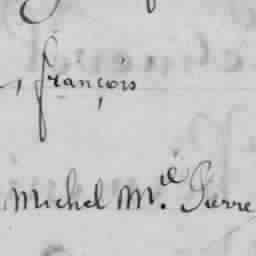 françois
Michel M.ie Pierre